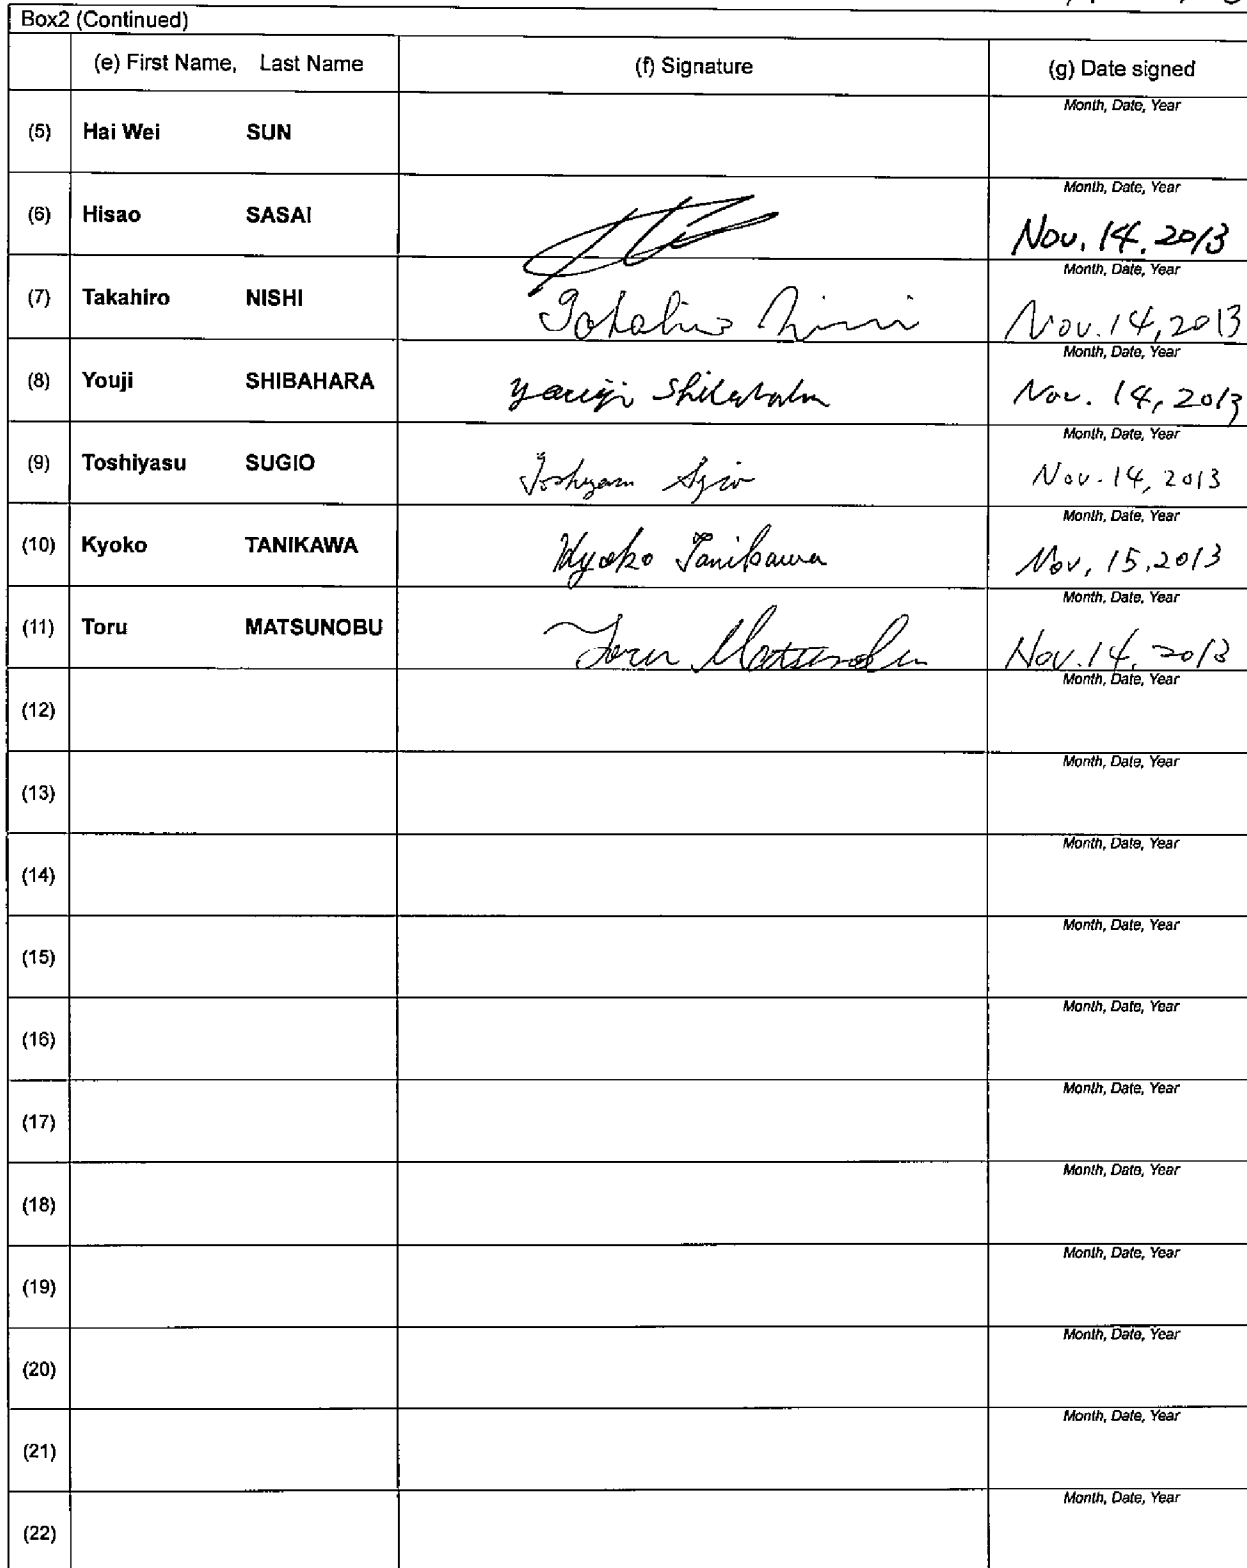 Box2 (Continued)
(e) First Name, Last Name (f) Signature (g) Date signed
(5) Hai Wei SUN Month, Date, Year
(6) Hisao SASAI Month, Date, Year
Nov. 14. 2013
(7) Takahiro NISHI Month, Date, Year
Nov. 14, 2013
(8) Youji SHIBAHARA Month, Date, Year
Youji Shibahara Nov. 14, 2013
(9) Toshiyasu SUGIO Month, Date, Year
Nov. 14, 2013
(10) Kyoko TANIKAWA Month, Date, Year
Kyoko Tanikawa Nov, 15, 2013
(11) Toru MATSUNOBU Month, Date, Year
Toru Matsunobu Nov. 14, 2013
(12) Month, Date, Year
(13) Month, Date, Year
(14) Month, Date, Year
(15) Month, Date, Year
(16) Month, Date, Year
(17) Month, Date, Year
(18) Month, Date, Year
(19) Month, Date, Year
(20) Month, Date, Year
(21) Month, Date, Year
(22) Month, Date, Year